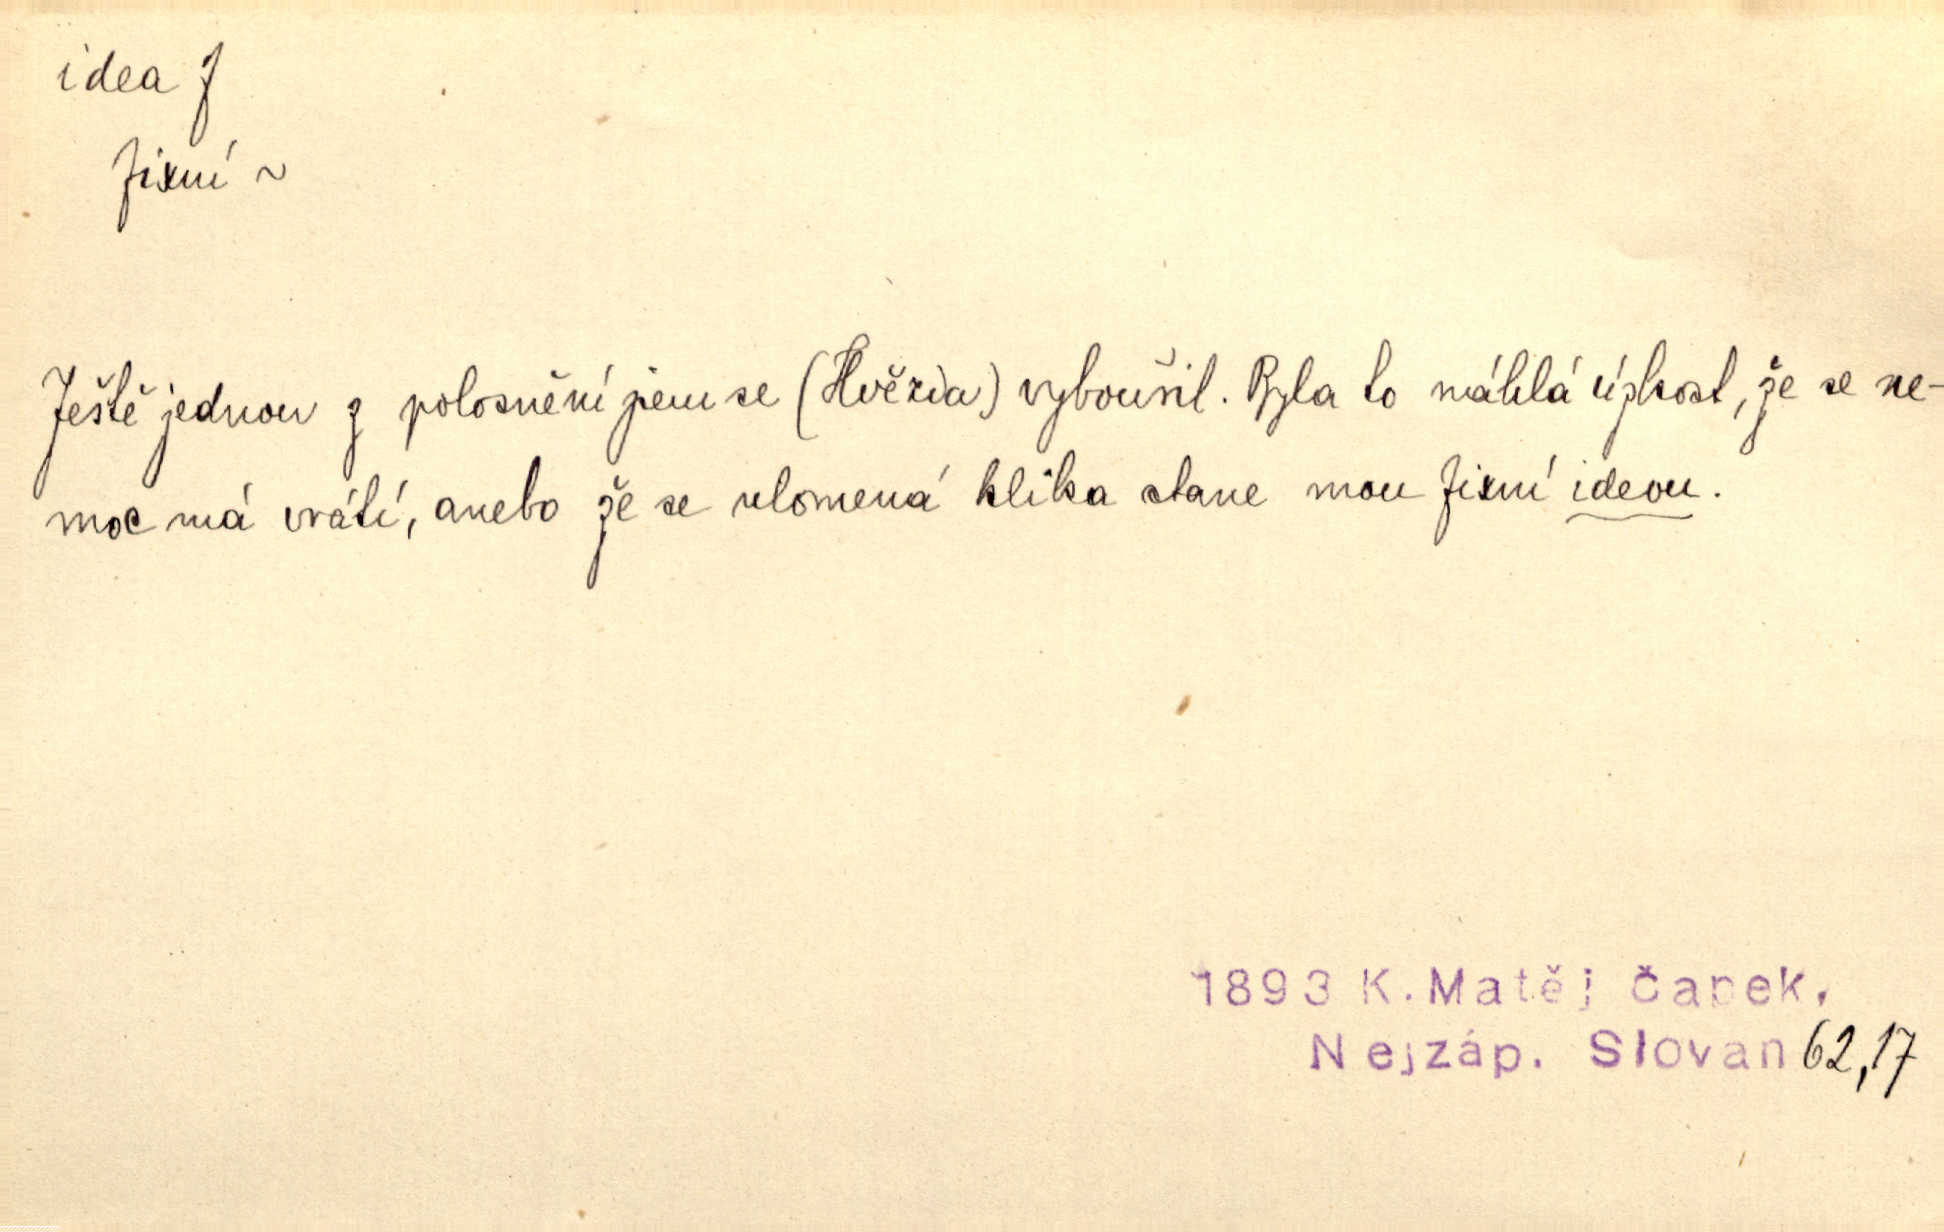 idea f
fixní ~
Ještě jednou z polosnění jsem se (Hvězda) vyboušil. Byla to náhlá úzkost, že se ne-
moc má vrátí, anebo že se ulomená klika stane mou fixní ideou.
1893 K. Matěj Čapek,
Nejzáp. Slovan 62,17